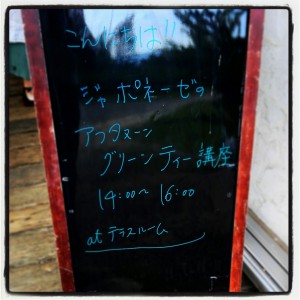 こんにちは!!
ジャポネーゼの
アフタヌーン
グリーンティー講座
14:00～16:00
at テラスルーム